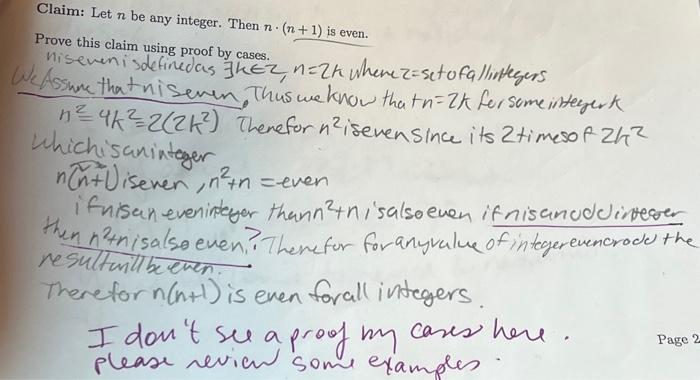 Claim: Let n be any integer. Then n · (n + 1) is even.
Prove this claim using proof by cases.
n is even is defined as ∃k∈Z, n=2k where Z=set of all integers
We Assume that n is even, Thus we know that n=2k for some integer k
n²=4k²=2(2k²) Therefor n² is even since its 2 times of 2k²
which is an integer
n(n+1) is even, n²+n = even
if n is an even integer than n²+n is also even if n is an odd integer
then n²+n is also even.? Therefor for any value of integer even or odd the
result will be even.
Therefor n(n+1) is even for all integers.
I don't see a proof by cases here.
Page 2
please review some examples.